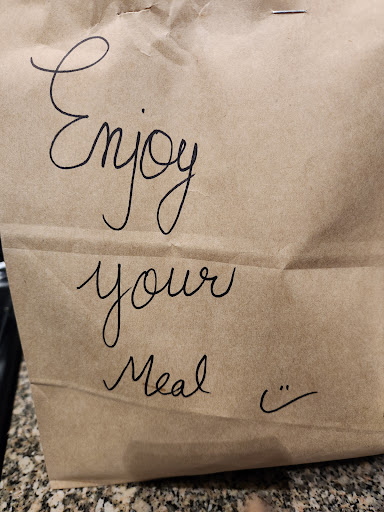 Enjoy
your
Meal